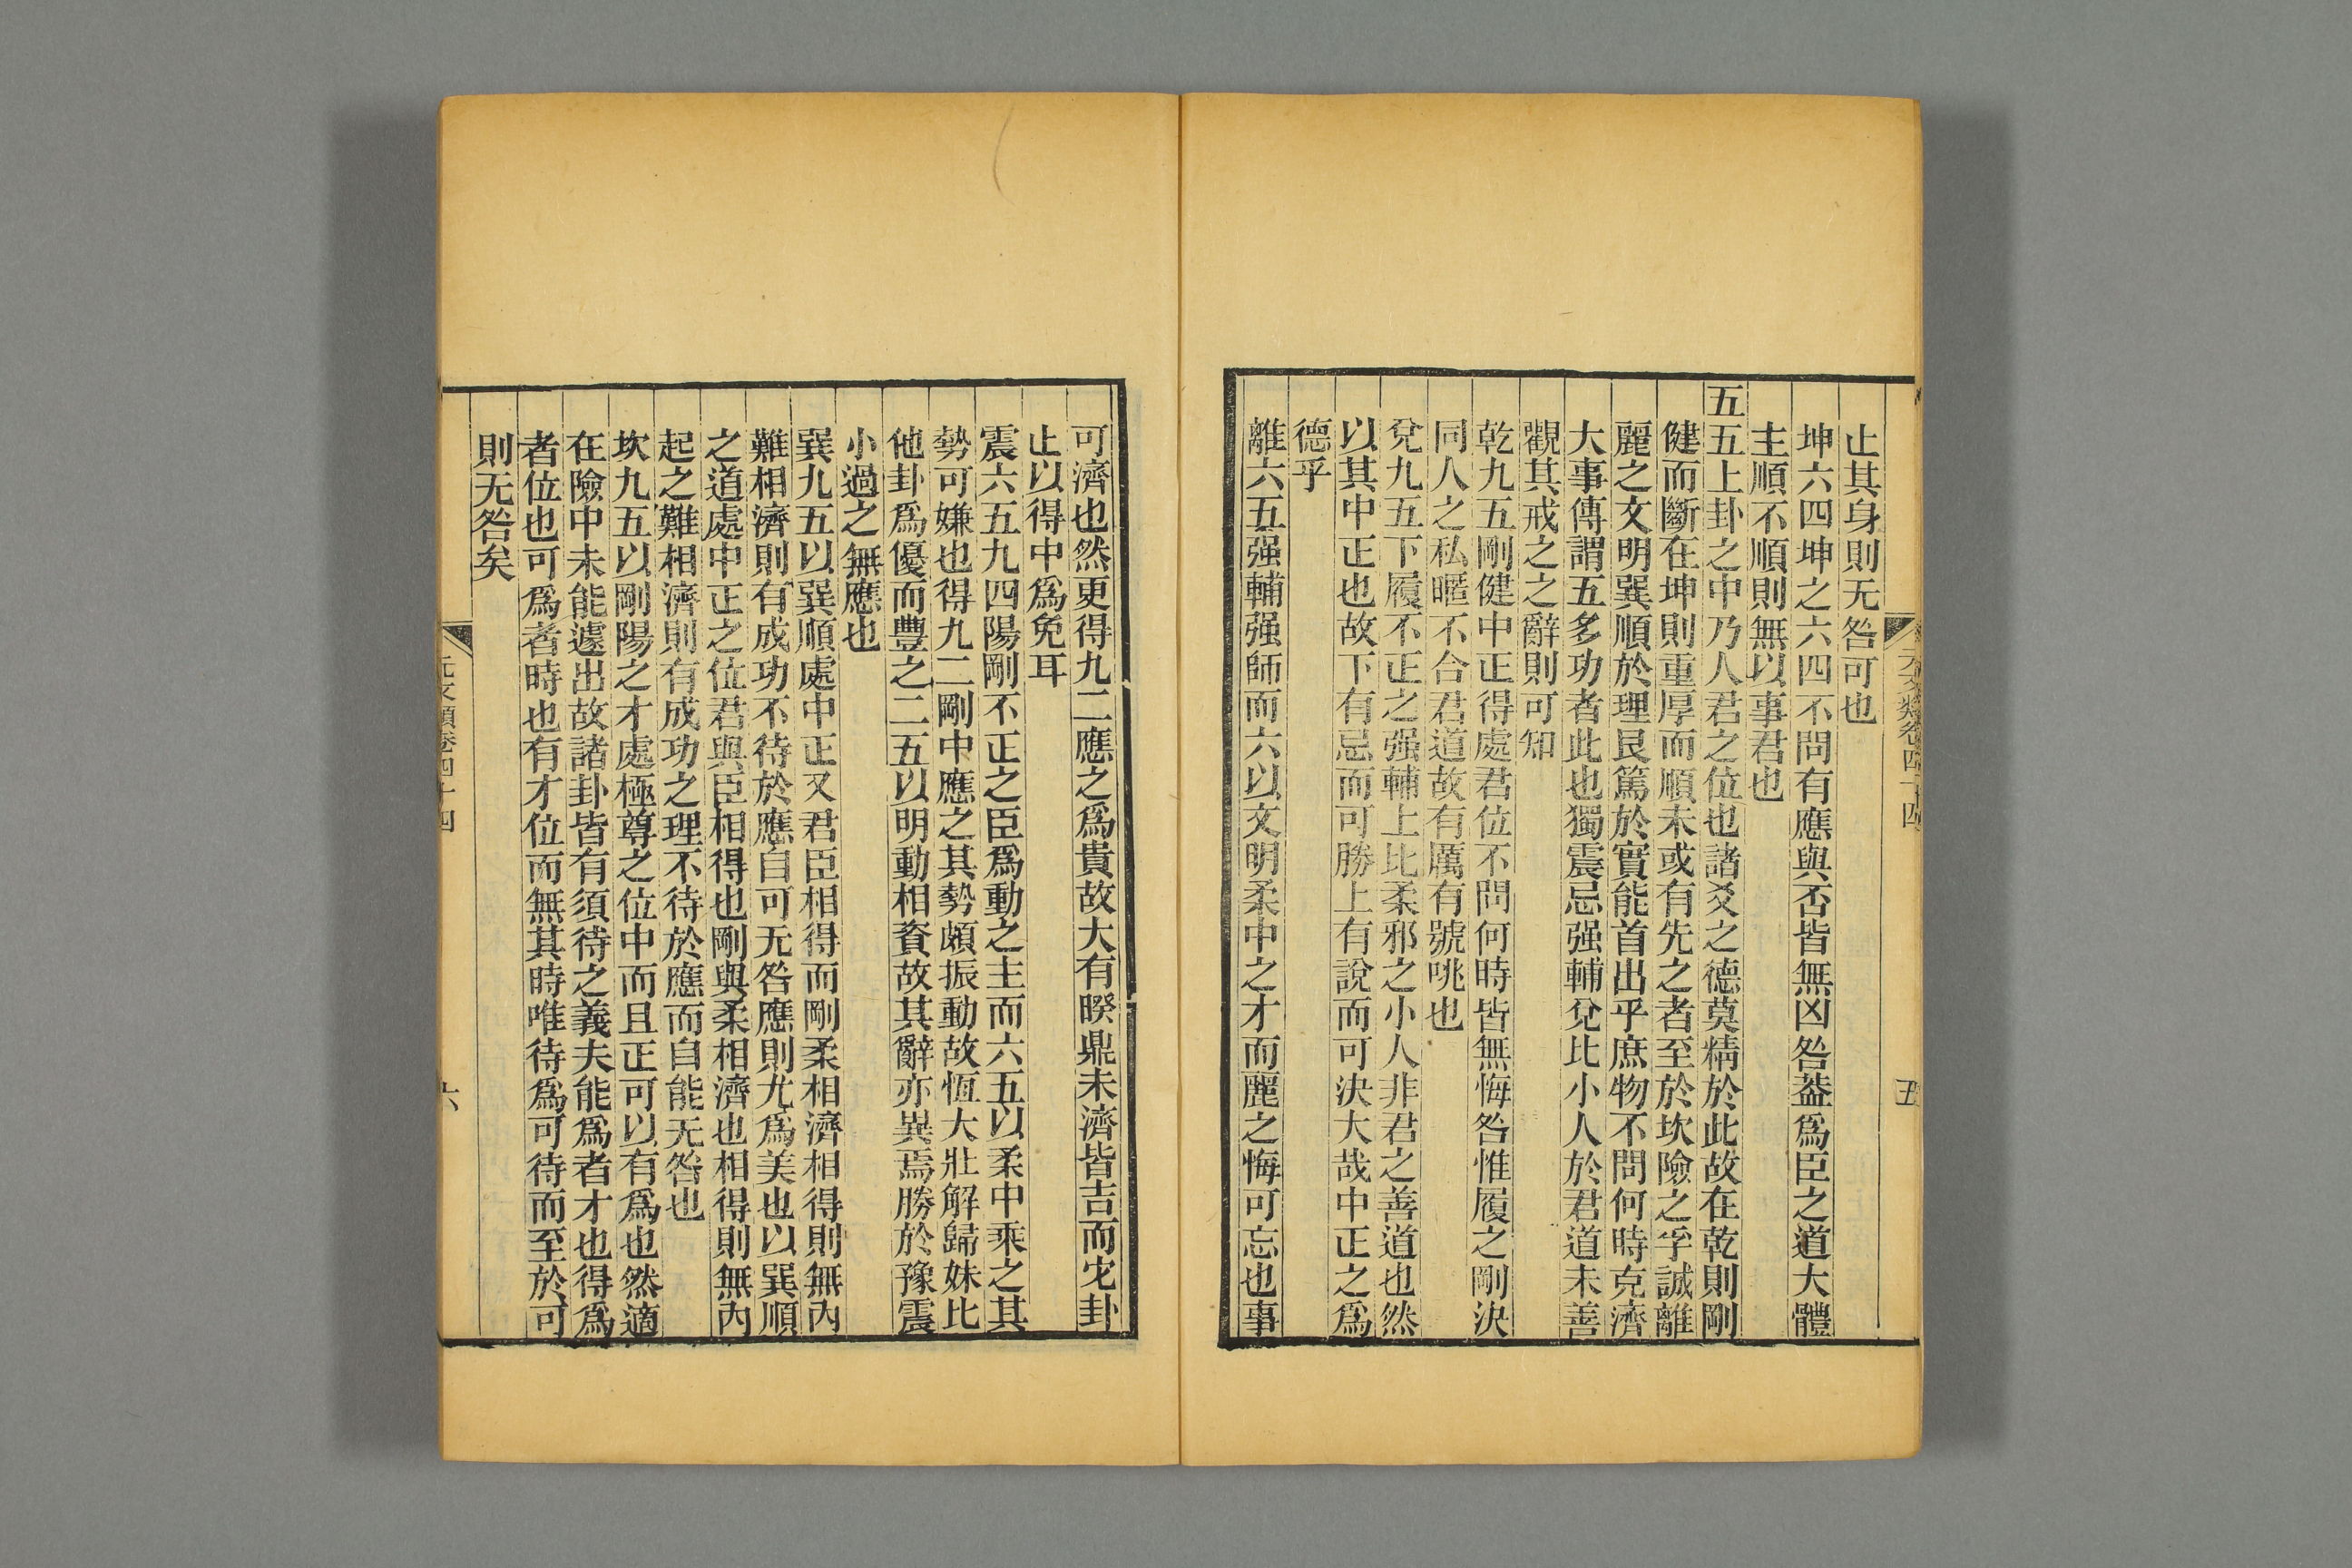 元文類卷四十四
五
止其身則无咎可也
坤六四坤之六四不問有應與否皆無凶咎葢爲臣之道大體
主順不順則無以事君也
五五上卦之中乃人君之位也諸爻之德莫精於此故在乾則剛
健而斷在坤則重厚而順未或有先之者至於坎險之孚誠離
麗之文明巽順於理艮篤於實能首出乎庶物不問何時克濟
大事傳謂五多功者此也獨震忌强輔兌比小人於君道未善
觀其戒之之辭則可知
乾九五剛健中正得處君位不問何時皆無悔咎惟履之剛決
同人之私暱不合君道故有厲有號咷也
兌九五下履不正之强輔上比柔邪之小人非君之善道也然
以其中正也故下有忌而可勝上有說而可決大哉中正之爲
德乎
離六五强輔强師而六以文明柔中之才而麗之悔可忘也事
可濟也然更得九二應之爲貴故大有睽鼎未濟皆吉而它卦
止以得中爲免耳
震六五九四陽剛不正之臣爲動之主而六五以柔中乘之其
勢可嫌也得九二剛中應之其勢頗振動故恆大壯解歸妹比
他卦爲優而豐之二五以明動相資故其辭亦異焉勝於豫震
小過之無應也
巽九五以巽順處中正又君臣相得而剛柔相濟相得則無內
難相濟則有成功不待於應自可无咎應則尤爲美也以巽順
之道處中正之位君與臣相得也剛與柔相濟也相得則無內
起之難相濟則有成功之理不待於應而自能无咎也
坎九五以剛陽之才處極尊之位中而且正可以有爲也然適
在險中未能遽出故諸卦皆有須待之義夫能爲者才也得爲
者位也可爲者時也有才位而無其時唯待爲可待而至於可
則无咎矣
元文類卷四十四
六